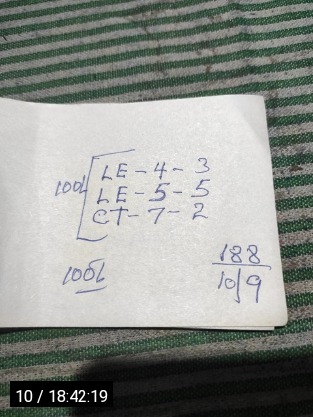 LE - 4 - 3
100L LE - 5 - 5
CT - 7 - 2
100L
188
10/9
10 / 18:42:19